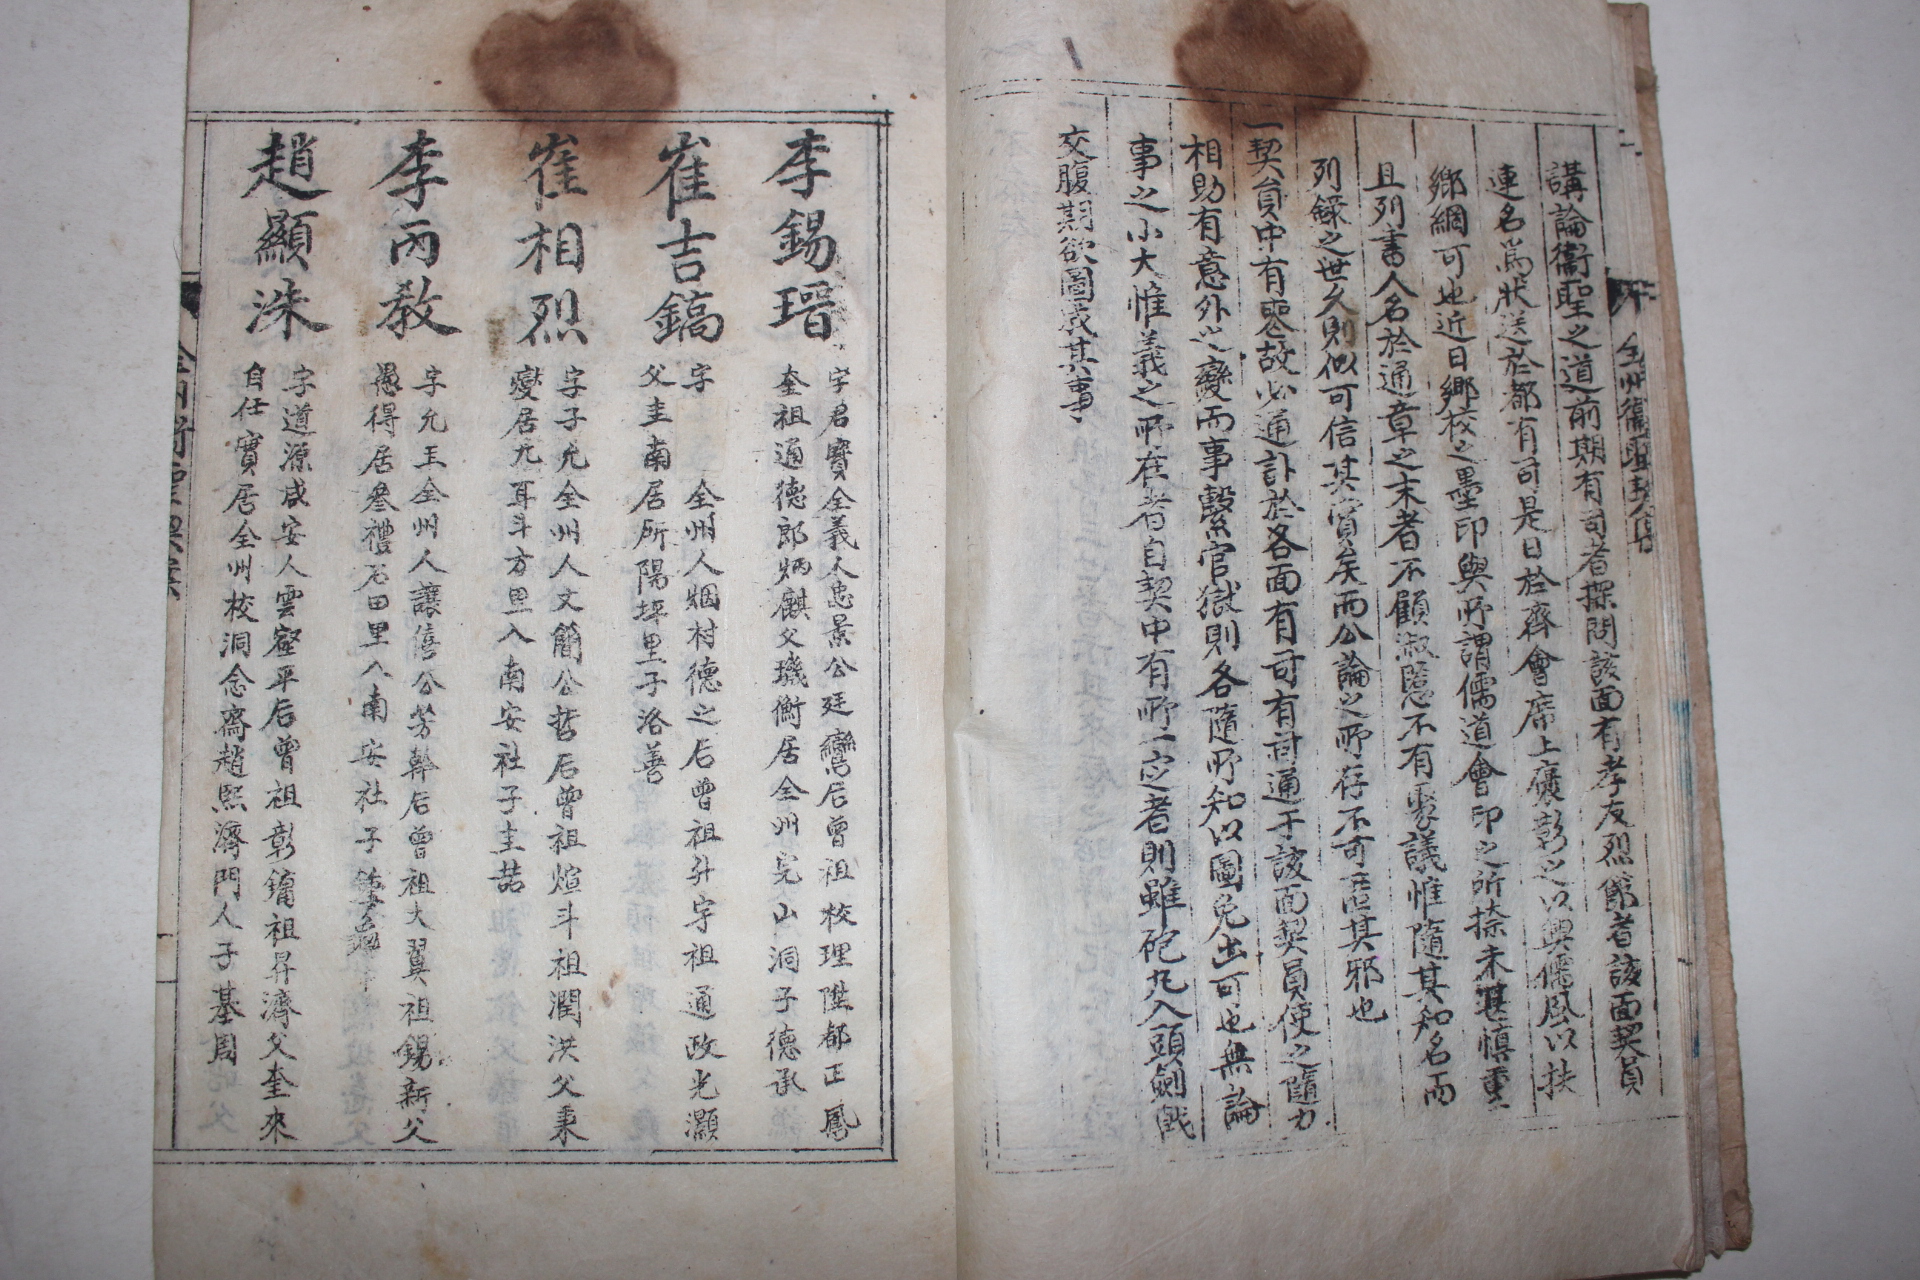 講論衞聖之道前期有司者探問該面有孝友烈節者該面契員
連名爲狀送於都有司是日於齊會席上褒彰之以興儒風以扶
鄉綱可也近日鄉校之墨印與所謂儒道會印之所捺未甚愼重
且列書人名於通章之末者不顧淑慝不有衆議惟隨其知名而
列錄之世久則似可信其實矣而公論之所存不可否其邪也
一契員中有喪故必通訃於各面有司有司通于該面契員使之隨力
相助有意外之變而事繫官獄則各隨所知以圖免出可也無論
事之小大惟義之所在者自契中有所一定者則雖砲丸入頭劍戟
交腹期欲圖成其事
全州衞聖契
李錫瑨
字君寶全義人忠景公廷鸞后曾祖校理陞都正鳳
奎祖通德郎炳麒父璣衡居全州完山洞子德承
崔吉鎬
字 全州人烟村德之后曾祖升宇祖通政光灝
父圭南居所陽坪里子洛善
崔相烈
字子允全州人文簡公哲后曾祖煊斗祖潤洪父秉
燮居九耳斗方里入南安社子圭喆
李丙敎
字允玉全州人讓僖公芳幹后曾祖大翼祖錫新父
得居參禮石田里入南安社子
趙顯洙
字道源咸安人雲壑平后曾祖彰鏞祖昇濟父奎來
自任實居全州校洞念齋趙熙濟門人子基周